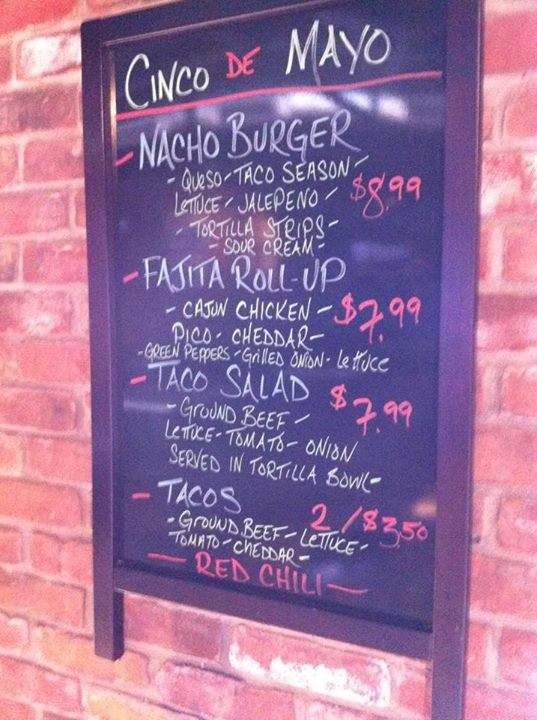 CINCO DE MAYO
- NACHO BURGER
- QUESO - TACO SEASON -
LETTUCE - JALEPENO - $8.99
- TORTILLA STRIPS -
- SOUR CREAM -
- FAJITA ROLL-UP
- CAJUN CHICKEN - $7.99
PICO - CHEDDAR -
- GREEN PEPPERS - GRILLED ONION - LETTUCE
- TACO SALAD $7.99
- GROUND BEEF -
LETTUCE - TOMATO - ONION
SERVED IN TORTILLA BOWL -
- TACOS 2/$3.50
- GROUND BEEF - LETTUCE -
TOMATO - CHEDDAR -
— RED CHILI —